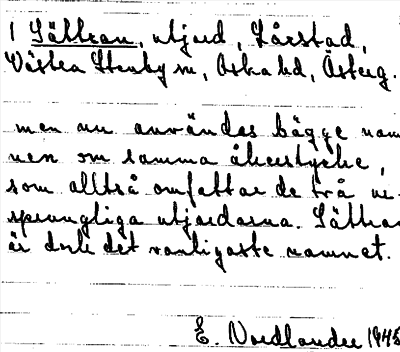 1 Sättran, utjord, Sårstad,
Västra Stenby sn, Aska hd, Österg.
men nu användes bägge nam-
nen om samma åkerstycke,
som alltså omfattar de två ur-
sprungliga utjordarna. Sättran
är dock det vanligaste namnet.
E. Nordlander 1945